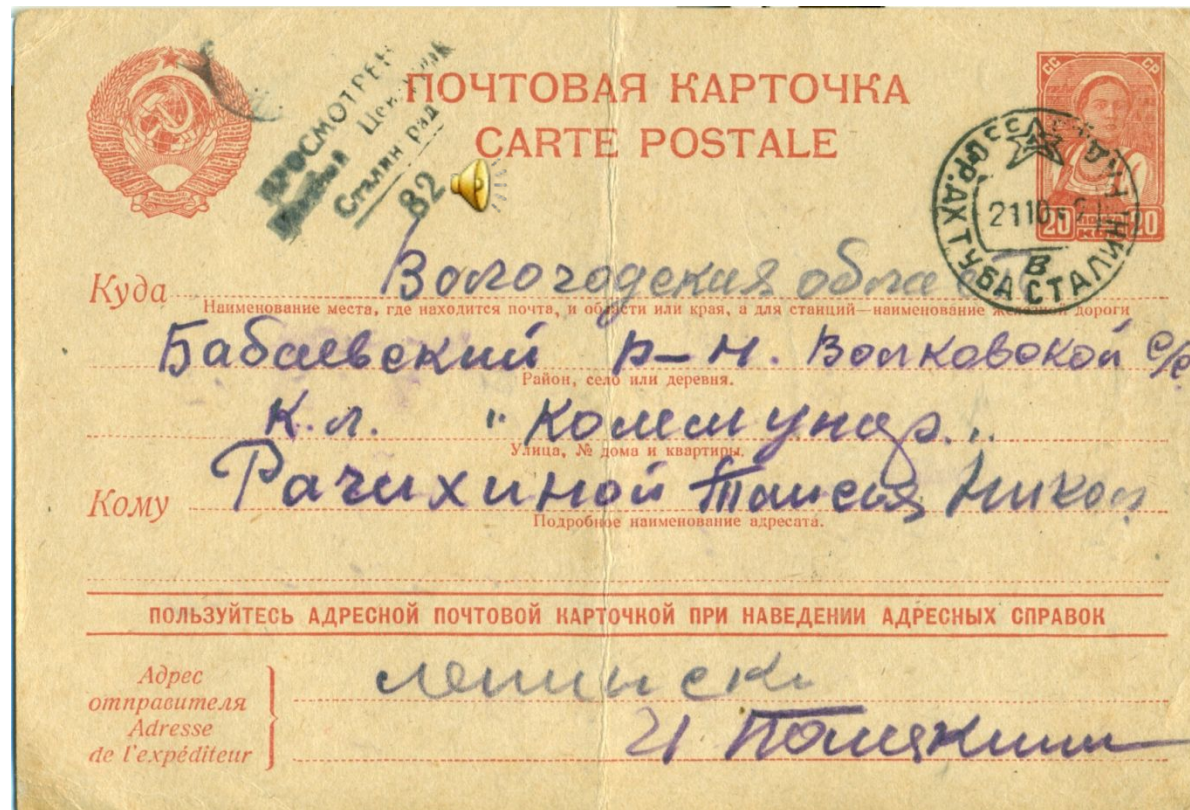 ПОЧТОВАЯ КАРТОЧКА
CARTE POSTALE
ПРОСМОТРЕНО
Военной Цензурой
Сталинград
82
СС СР
20 ПОЧТА КОП 20
СР. АХТУБА СТАЛИНГР
21 10
В
Куда Вологодская облас
Наименование места, где находится почта, и области или края, а для станций—наименование железной дороги
Бабаевский р-н. Волковской с/с
Район, село или деревня.
К.л. "Коммунар."
Улица, № дома и квартиры.
Кому Рачихиной Таисия Никол
Подробное наименование адресата.
ПОЛЬЗУЙТЕСЬ АДРЕСНОЙ ПОЧТОВОЙ КАРТОЧКОЙ ПРИ НАВЕДЕНИИ АДРЕСНЫХ СПРАВОК
Адрес
отправителя
Adresse
de l'expéditeur
Ленинск